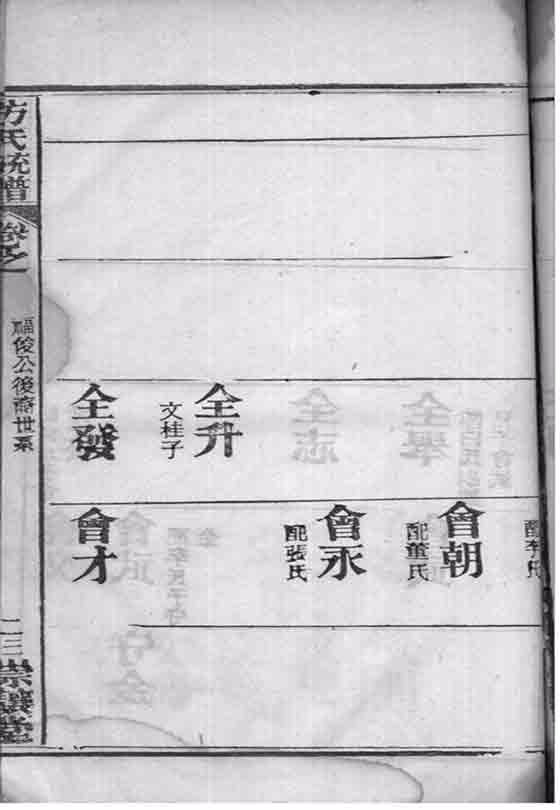 全升
文桂子
全發
配李氏
會朝
配董氏
會永
配張氏
會才
方氏統譜
福俊公後裔世系
二三